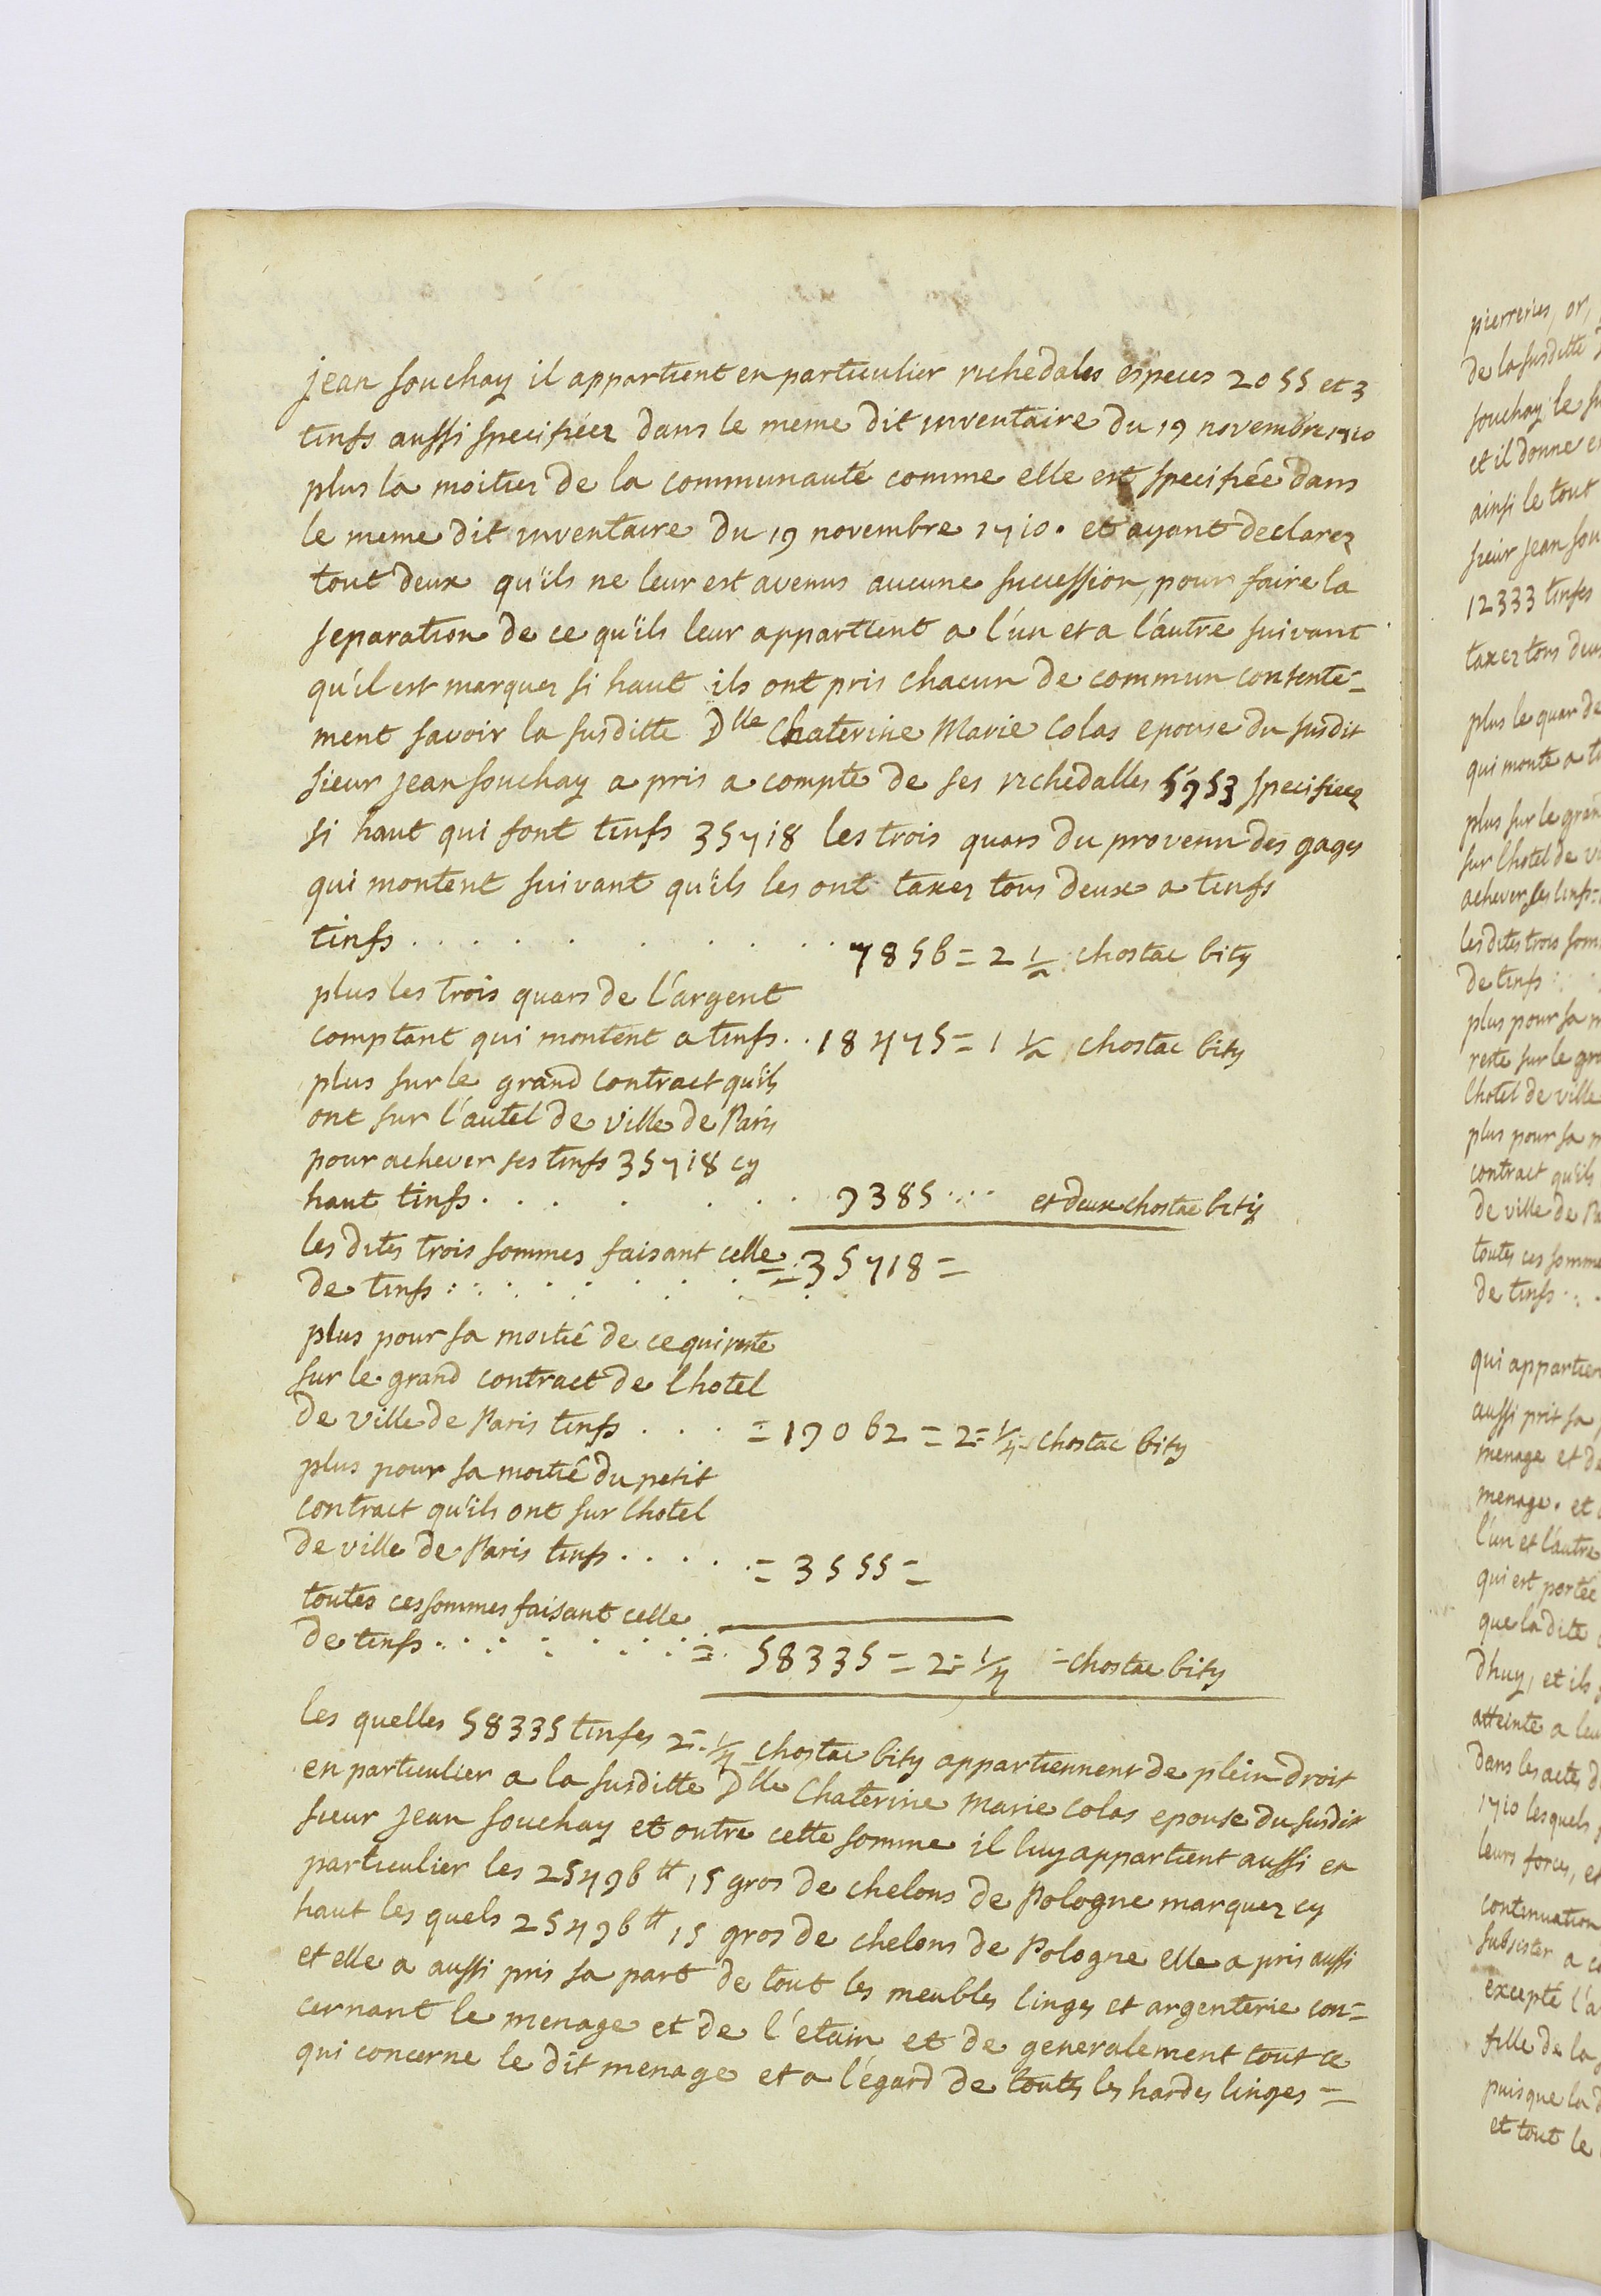 jean souchay il appartient en particulier richedales especes 2055 et 3
tinfs aussi specifiéez dans le meme dit inventaire du 19 novembre 1710
plus la moitiez de la communauté comme elle est specifiée dans
le meme dit inventaire du 19 novembre 1710. et ayant declarez
tout deux qu'ils ne leur est avenus aucune succession, pour faire la
separation de ce qu'ils leur appartient a l'un et a l'autre suivant
qu'il est marquez si haut ils ont pris chacun de commun consente=
ment savoir la susditte Dlle Chaterine Marie Colas epouse du susdit
sieur jean souchay a pris a compte de ses richedalles 5953 specifieez
si haut qui font tinfs 35718 les trois quars du provenu des gages
qui montent suivant qu'ils les ont taxez tous deux a tinfs
tinfs . . . . . . . . . 7856 = 2 1/2 chostac bity
plus les trois quars de l'argent
comptant qui montent a tinfs . . 18475 = 1 1/2 chostac bity
plus sur le grand contract qu'ils
ont sur l'autel de ville de Paris
pour achever ses tinfs 35718 cy
haut tinfs . . . . . . 9385 . . . . et deux chostac bity
les dites trois sommes faisant celle
de tinfs : : . : : . . : = 35718 =
plus pour sa moitié de ce qui reste
sur le grand contract de l hotel
de ville de Paris tinfs . . . = 19062 = 2 = 1/4 chostac bity
plus pour sa moitié du petit
contract qu'ils ont sur l hotel
de ville de Paris tinfs . . . . = 3555 =
toutes ces sommes faisant celle
de tinfs . . : : . . : = 58335 = 2 = 1/4 = chostac bity
les quelles 58335 tinfes 2 = 1/4 chostac bity appartiennent de plein droit
en particulier a la susditte Dlle Chaterine Marie Colas epouse du susdit
sieur jean souchay et outre cette somme il luy appartient aussi en
particulier les 25496 tt 15 gros de chelons de Pologne marquez cy
haut les quels 25496 tt 15 gros de chelons de Pologne elle a pris aussi
et elle a aussi pris sa part de tout les meubles linges et argenterie con=
cernant le menage et de l'etain et de generalement tout ce
qui concerne le dit menage et a l'égard de toutes les hardes linges =
pierreries, or,
de la susditte
souchay le
et il donne
ainsi le tout
sieur jean
12333 tinfes
taxez tous
plus le quar de
qui monte a
plus sur le
sur l hotel de
achever ses tinfs
les dites trois
de tinfs :
plus pour sa
reste sur le
l hotel de ville
plus pour sa
contract qu'ils
de ville de
toutes ces
de tinfs . :
qui
aussi prit sa
menage et
menage . et
l'un et l'autre
qui est portée
que la dite
dhuy, et ils
atteinte a
dans les actes
1710 lesquels
leurs forces, et
continuation
subsister a
excepté
fille de la
puis que la
et tout le